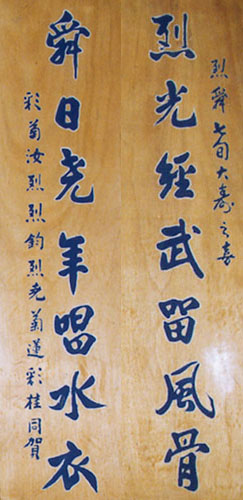 烈舜七旬大寿之喜
烈光經武留風骨
舜日尧年唱水衣
彩菊汝烈烈钧烈尧菊莲彩桂同賀